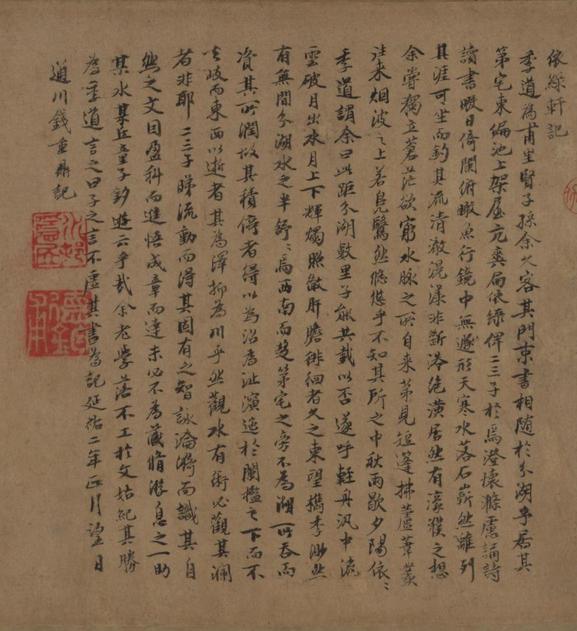 依綠軒記
季道為甫里賢子孫余久客其門束書相随於分湖乎居其
第宅東偏池上架屋亢爽扁依綠俾二三子於焉澄懷滌慮誦詩
讀書暇日倚闌俯瞰魚行鏡中無遯形天寒水落石嶄然離列
其涯可坐而釣其流清澈滉漾非斷港絕潢居然有濠濮之想
余嘗獨立蒼茫欲窮水脉之所自来第見短篷拂蘆葦叢
往来烟波之上若鳧鷖然悠悠乎不知其所之中秋雨歇夕陽依〻
季道謂余曰此距分湖數里子能共載以否遂呼輕舟汎中流
雲破月出水月上下輝燭照徹肝膽徘徊者久之東望檇李渺然
有無間分湖水之半舒〻焉西南而楚第宅之旁不為湖所吞而
資其所潤故其積滀者得以為沼為沚演迤於闌檻之下而不
岐而東西以逝者其為澤抑為川乎然觀水有術必觀其瀾
者非耶二三子睇流動而得其固有之智詠淪漪而識其自
然之文因盈科而進悟成章而達未必不為藏脩游息之一助
某水某丘童子釣遊云乎哉余老學落不工於文姑紀其勝
為季道言之曰子之言不虛其書為記延祐二年正月望日
通川錢重鼎記